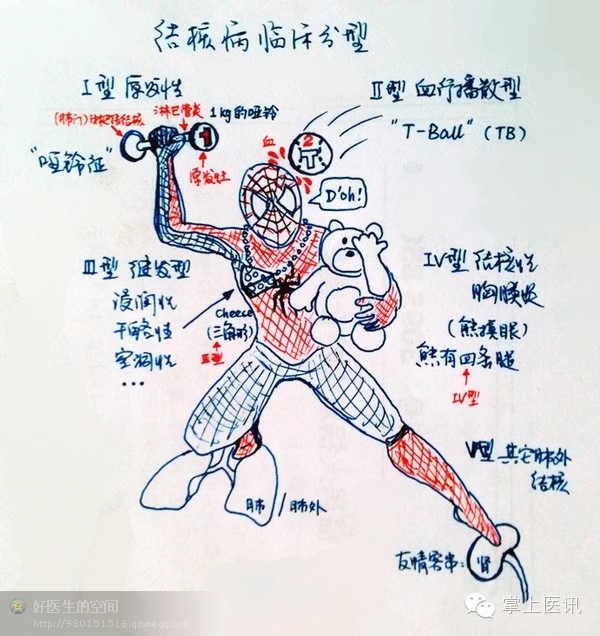 结核病临床分型
I型 原发性
(肺门)淋巴结结核
淋巴管炎
1kg的哑铃
1
"哑铃征"
原发灶
II型 血行播散型
"T-Ball" (TB)
血
2
T
D'oh!
III型 继发型
浸润性
干酪性
空洞性
...
cheese
(三角形)
III型
IV型 结核性
胸膜炎
(熊摸眼)
熊有四条腿
IV型
V型 其它肺外
结核
肺/肺外
友情客串:
肾
好医生的空间
http://980151516.qzone.qq.com
掌上医讯